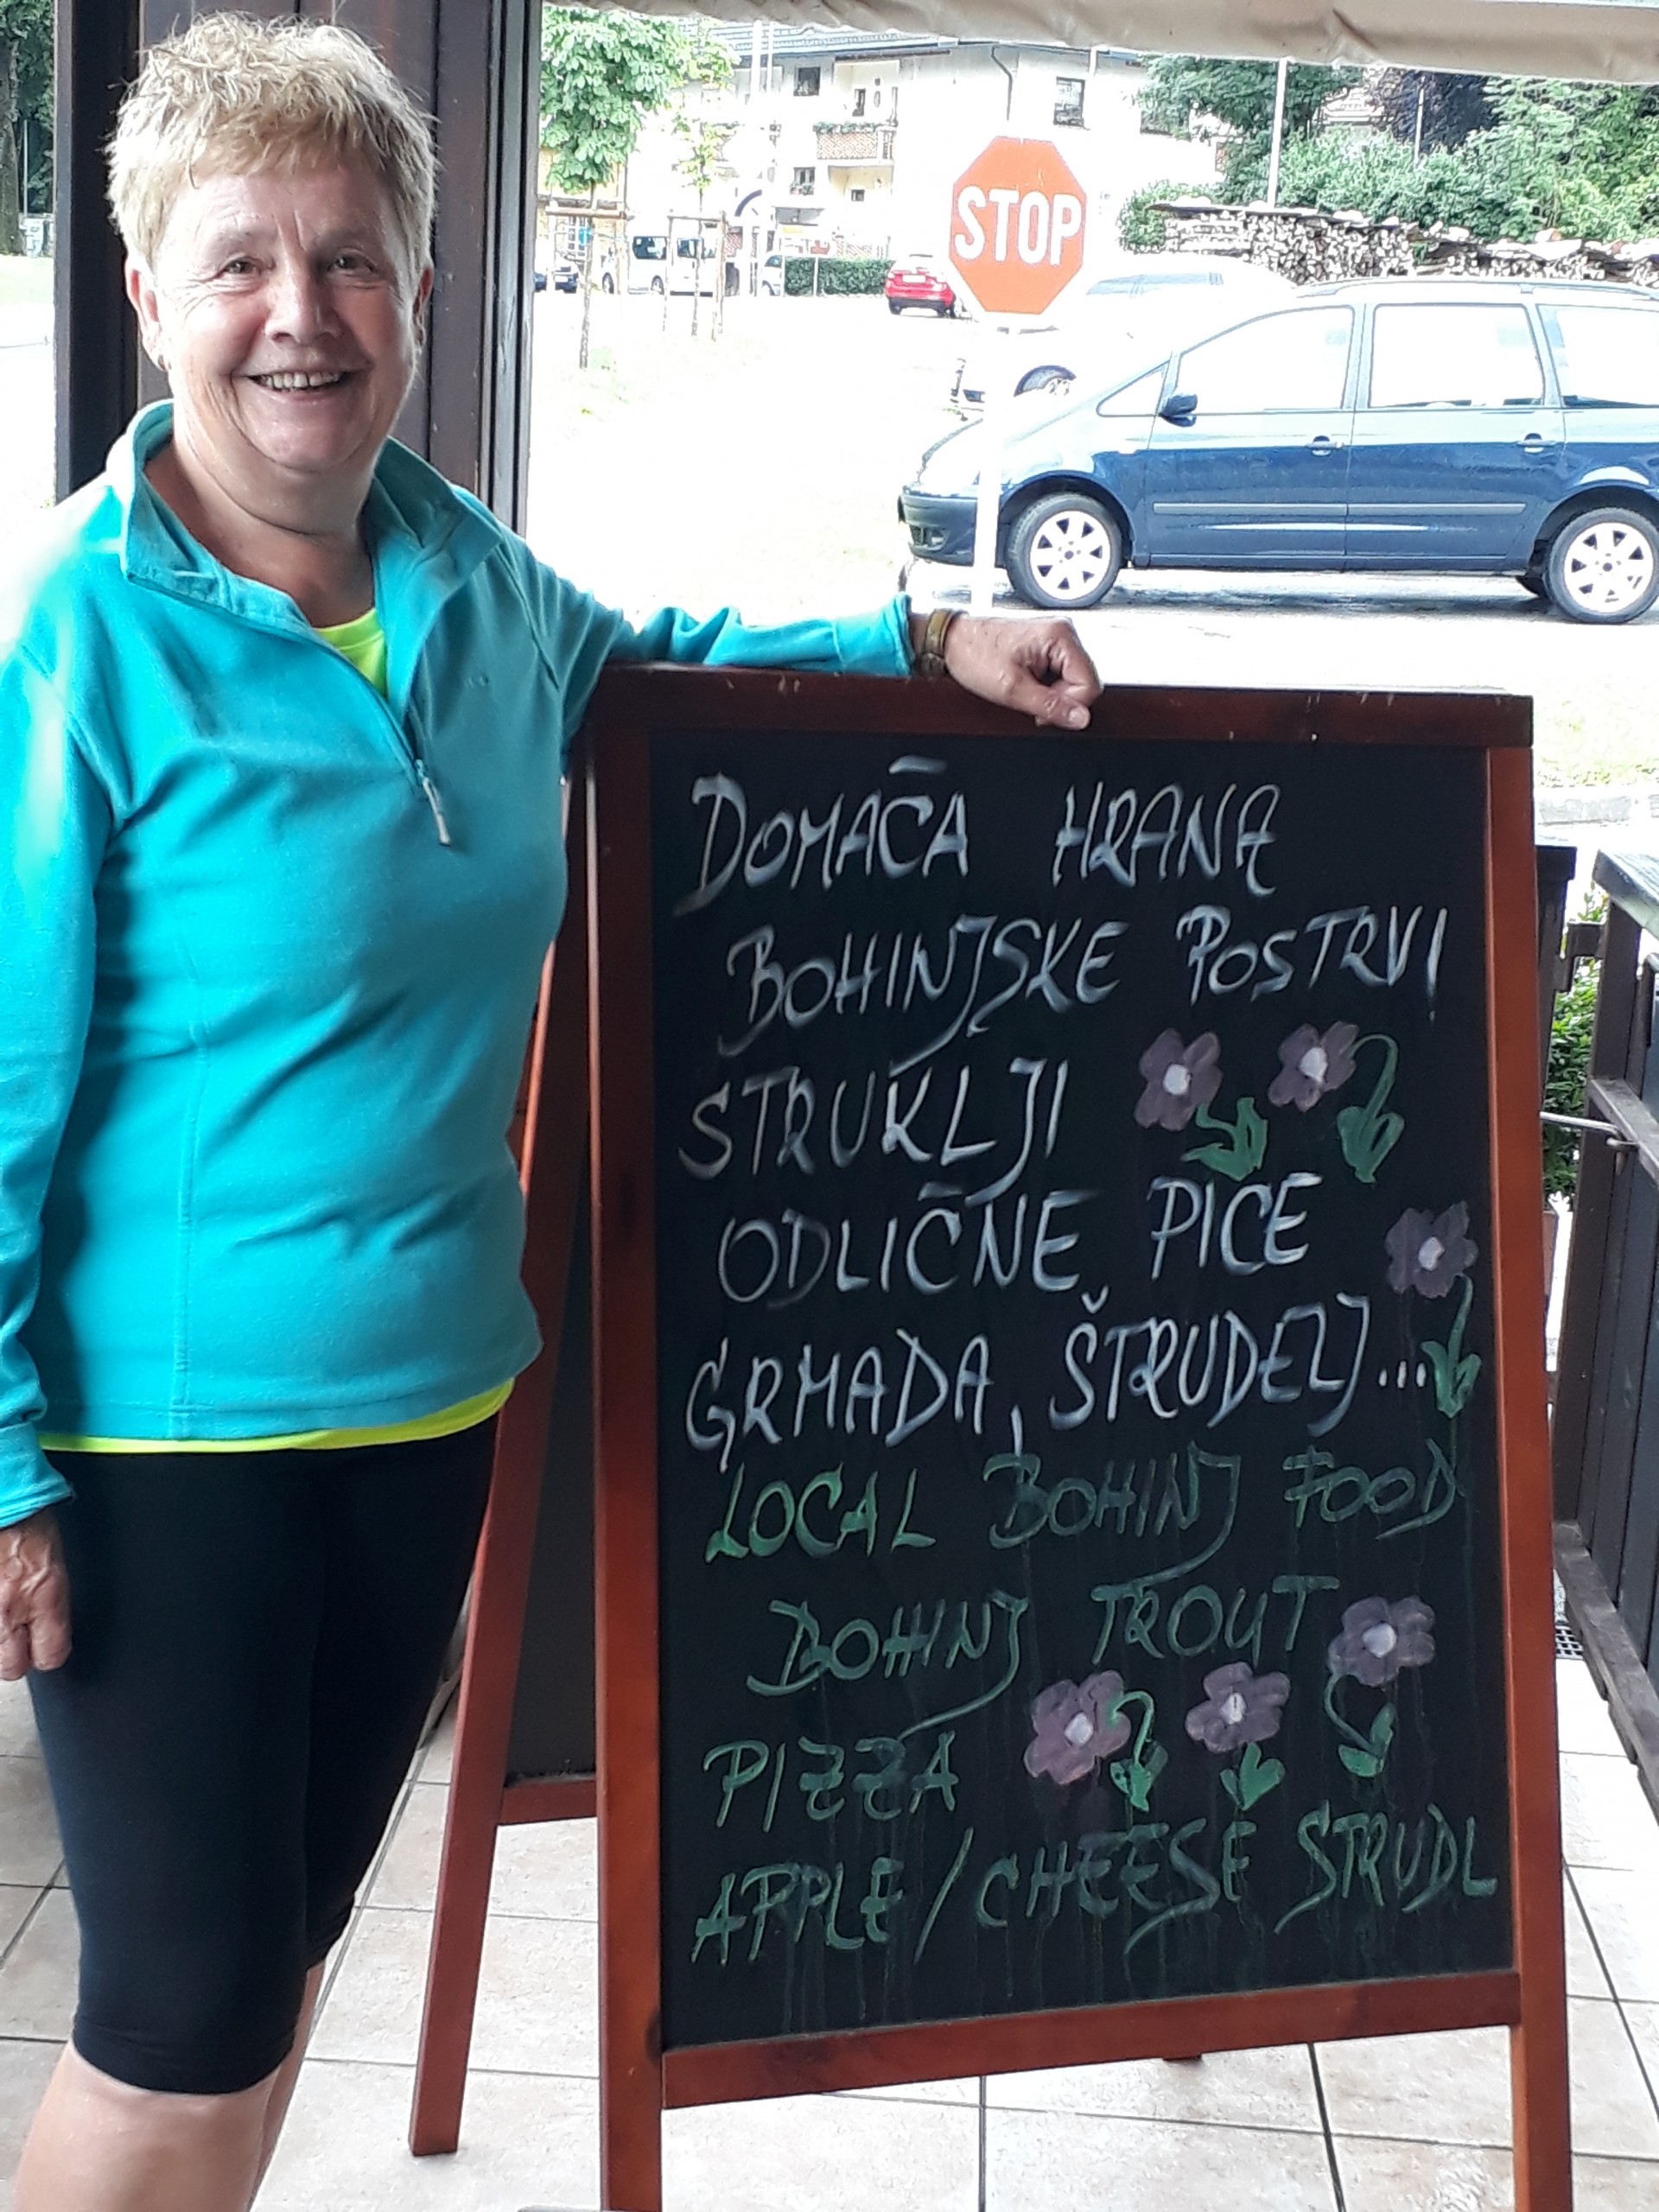 STOP
DOMAČA HRANA
BOHINJSKE POSTRVI
STRUKLJI
ODLIČNE PICE
GRMADA, ŠTRUDELJ...
LOCAL BOHINJ FOOD
BOHINJ TROUT
PIZZA
APPLE/CHEESE STRUDL